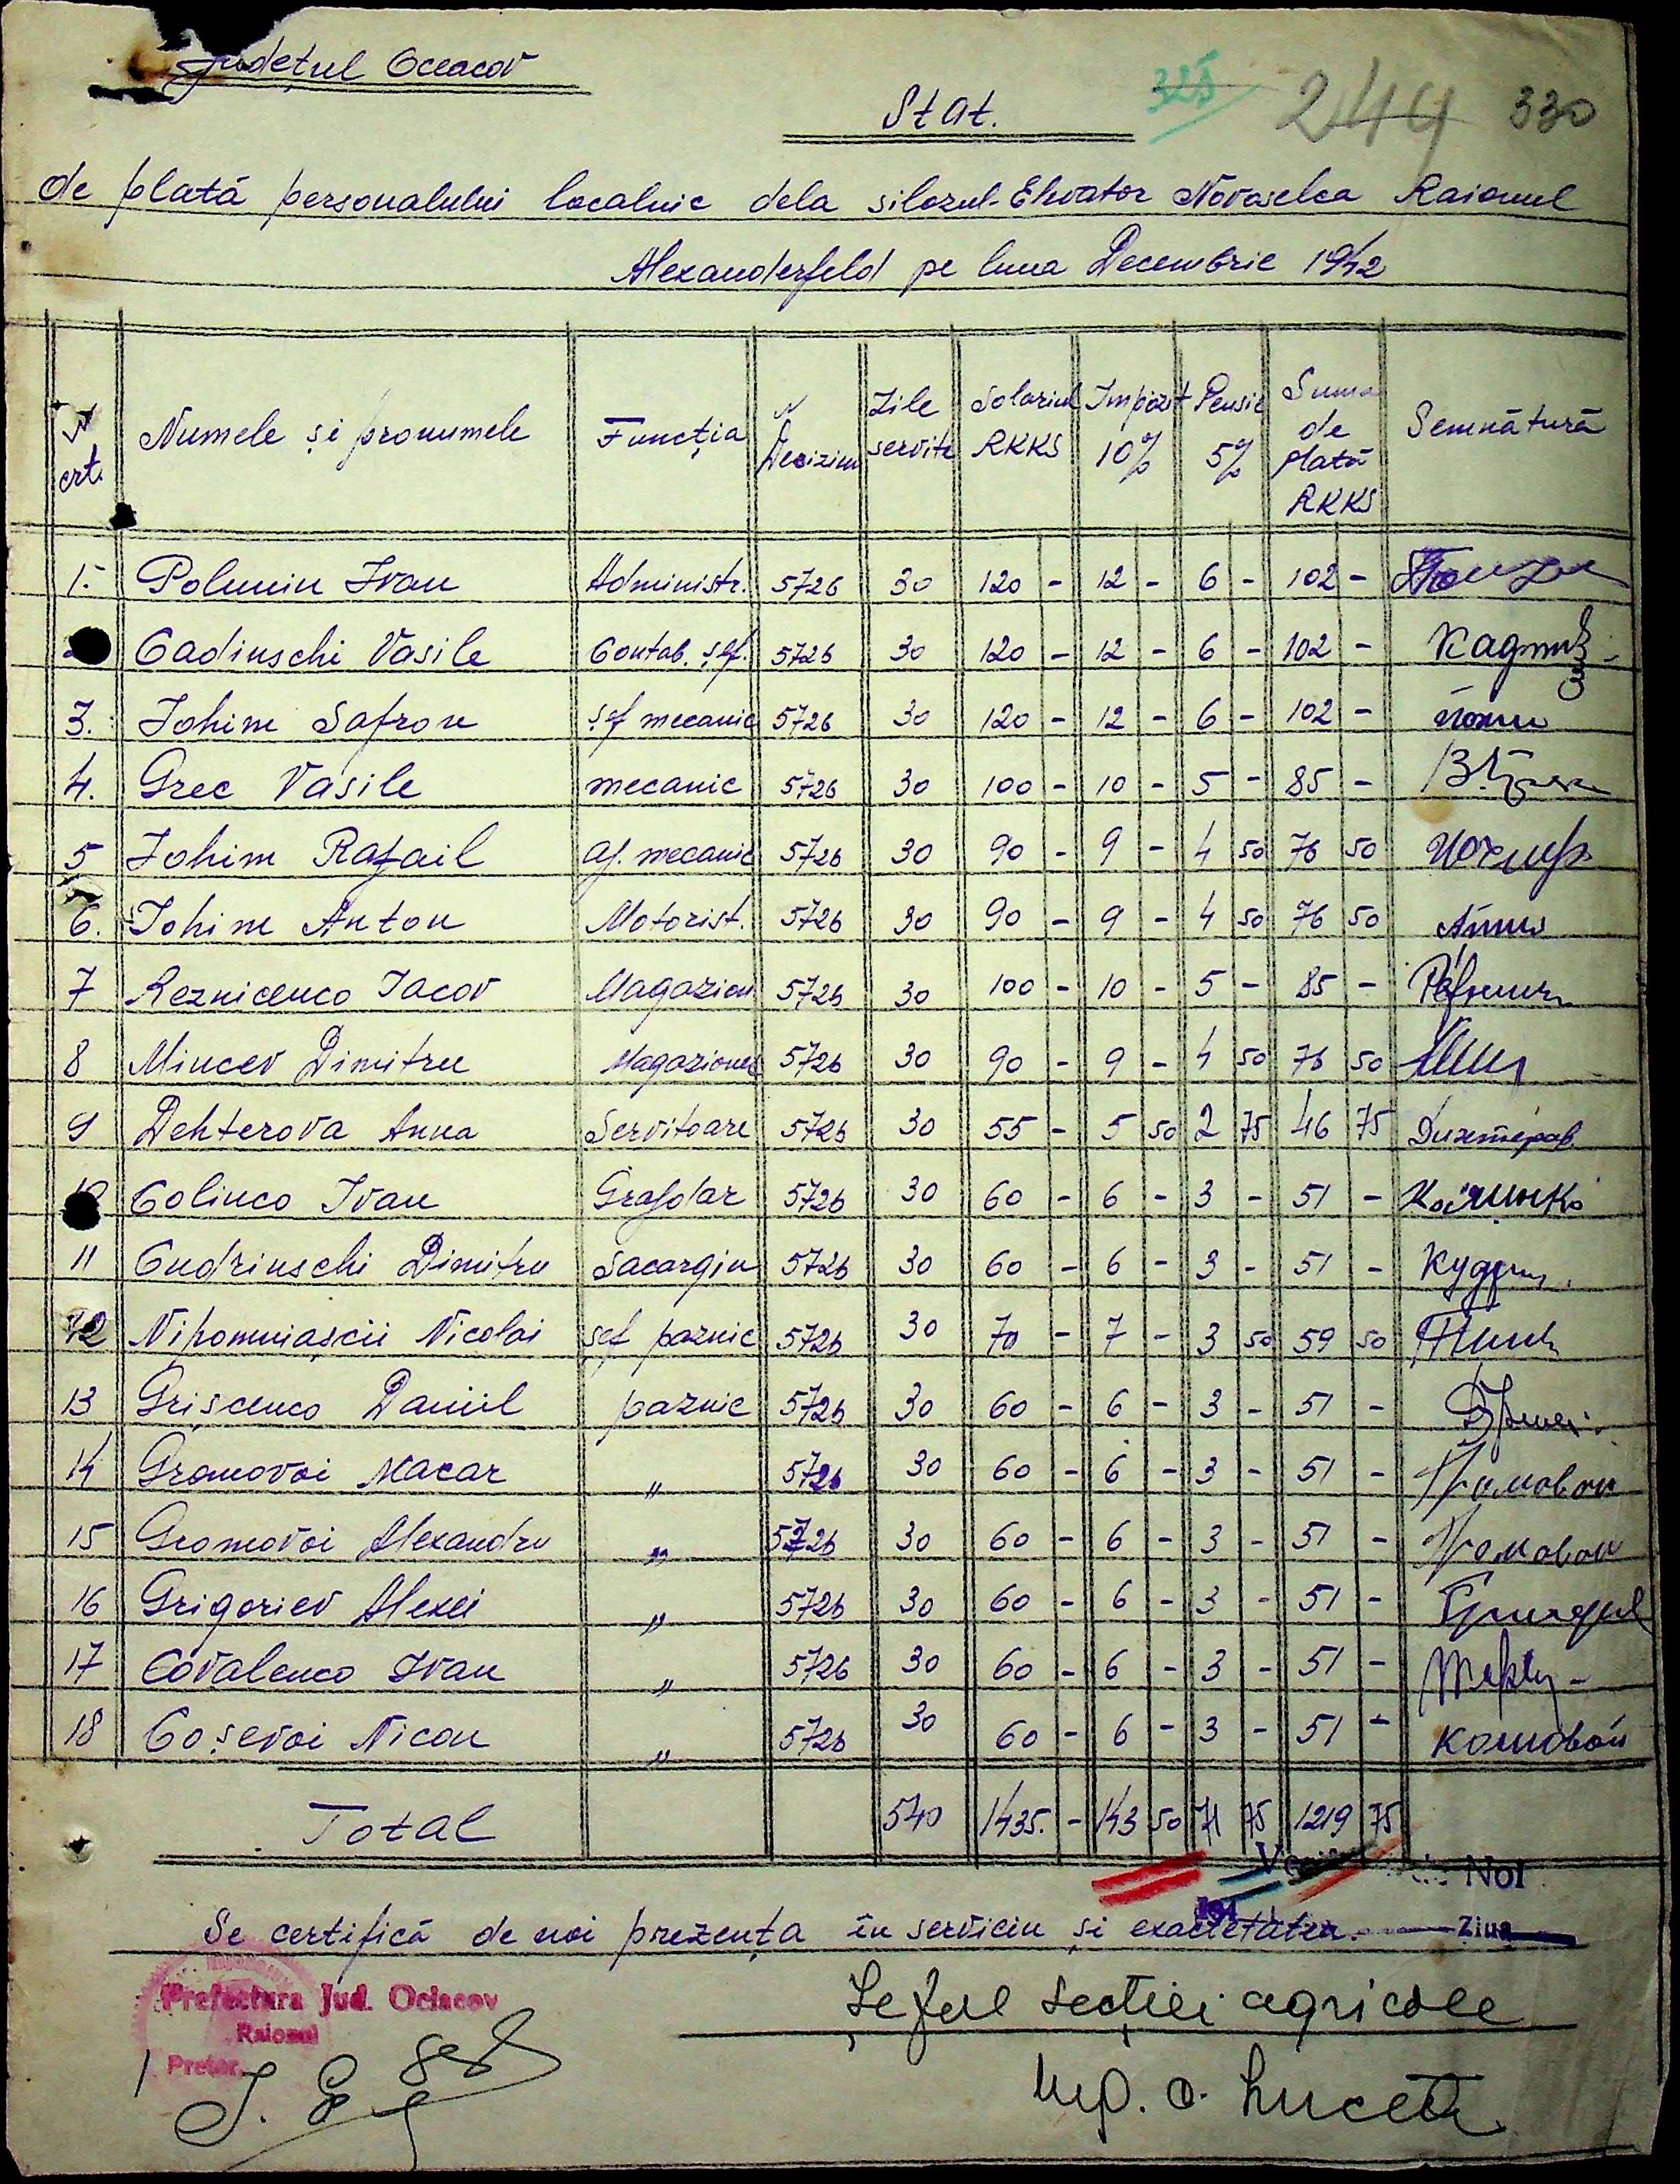 Județul Oceacov
Stat.
325 244 330
de plată personalului localnic dela silozul-Elevator Novoselca Raionul
Alexanderfeld pe luna Decembrie 1942
N crt. Numele și pronumele Funcția N Deciziei Zile servite Solariul RKKS Impozit 10% Pensie 5% Suma de plată RKKS Semnătură
1. Polunin Ivan Administr. 5726 30 120 - 12 - 6 - 102 -
Cadinschi Vasile Contab. șef. 5726 30 120 - 12 - 6 - 102 -
3. Iohim Safron șef mecanic 5726 30 120 - 12 - 6 - 102 -
4. Grec Vasile mecanic 5726 30 100 - 10 - 5 - 85 -
5 Iohim Rafail aj. mecanic 5726 30 90 - 9 - 4 50 76 50
6. Iohim Anton Motorist. 5726 30 90 - 9 - 4 50 76 50
7 Reznicenco Iacov Magazion 5726 30 100 - 10 - 5 - 85 -
8 Mincev Dimitru Magazioner 5726 30 90 - 9 - 4 50 76 50
9 Dehterova Anna Servitoare 5726 30 55 - 5 50 2 75 46 75
10 Colinco Ivan Grajdar 5726 30 60 - 6 - 3 - 51 - Колинко
11 Cudrinschi Dimitru Sacargiu 5726 30 60 - 6 - 3 - 51 -
12 Nipomniașcii Nicolai șef paznic 5726 30 70 - 7 - 3 50 59 50
13 Grișcenco Daniil paznic 5726 30 60 - 6 - 3 - 51 -
14 Gromovoi Macar " 5726 30 60 - 6 - 3 - 51 - Громовои
15 Gromovoi Alexandru " 5726 30 60 - 6 - 3 - 51 - Громовои
16 Grigoriev Alexei " 5726 30 60 - 6 - 3 - 51 -
17 Covalenco Ivan " 5726 30 60 - 6 - 3 - 51 -
18 Coșevoi Nicon " 5726 30 60 - 6 - 3 - 51 - Кошовой
Total 540 1435. - 143 50 71 75 1219 75
Noi
Se certifică de noi prezența în serviciu și exactetatea. Ziua
Prefectura Jud. Ociacov
Raionul
Pretor.
Șeful secției agricole